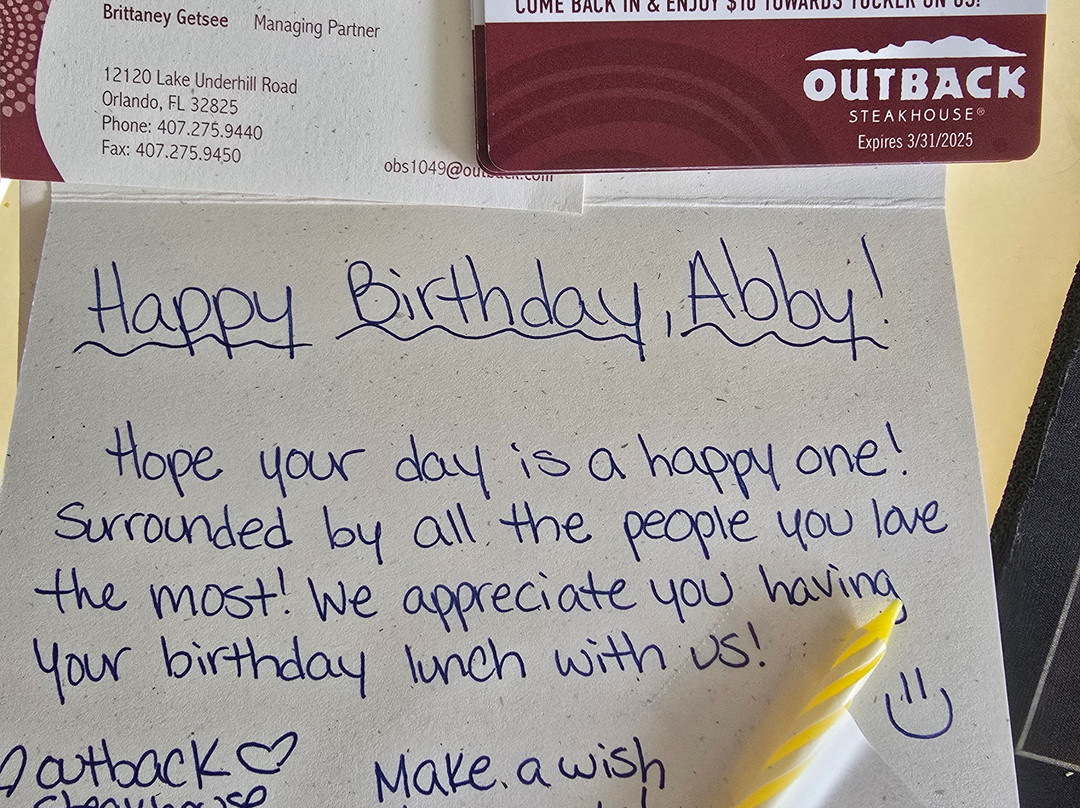 Brittaney Getsee Managing Partner
12120 Lake Underhill Road
Orlando, FL 32825
Phone: 407.275.9440
Fax: 407.275.9450
obs1049@outback.com
COME BACK IN & ENJOY $10 TOWARDS TUCKER ON US!
OUTBACK
STEAKHOUSE®
Expires 3/31/2025
Happy Birthday, Abby!
Hope your day is a happy one!
Surrounded by all the people you love
the most! We appreciate you having
your birthday lunch with us!
Outback ♡
Steakhouse
Make a wish